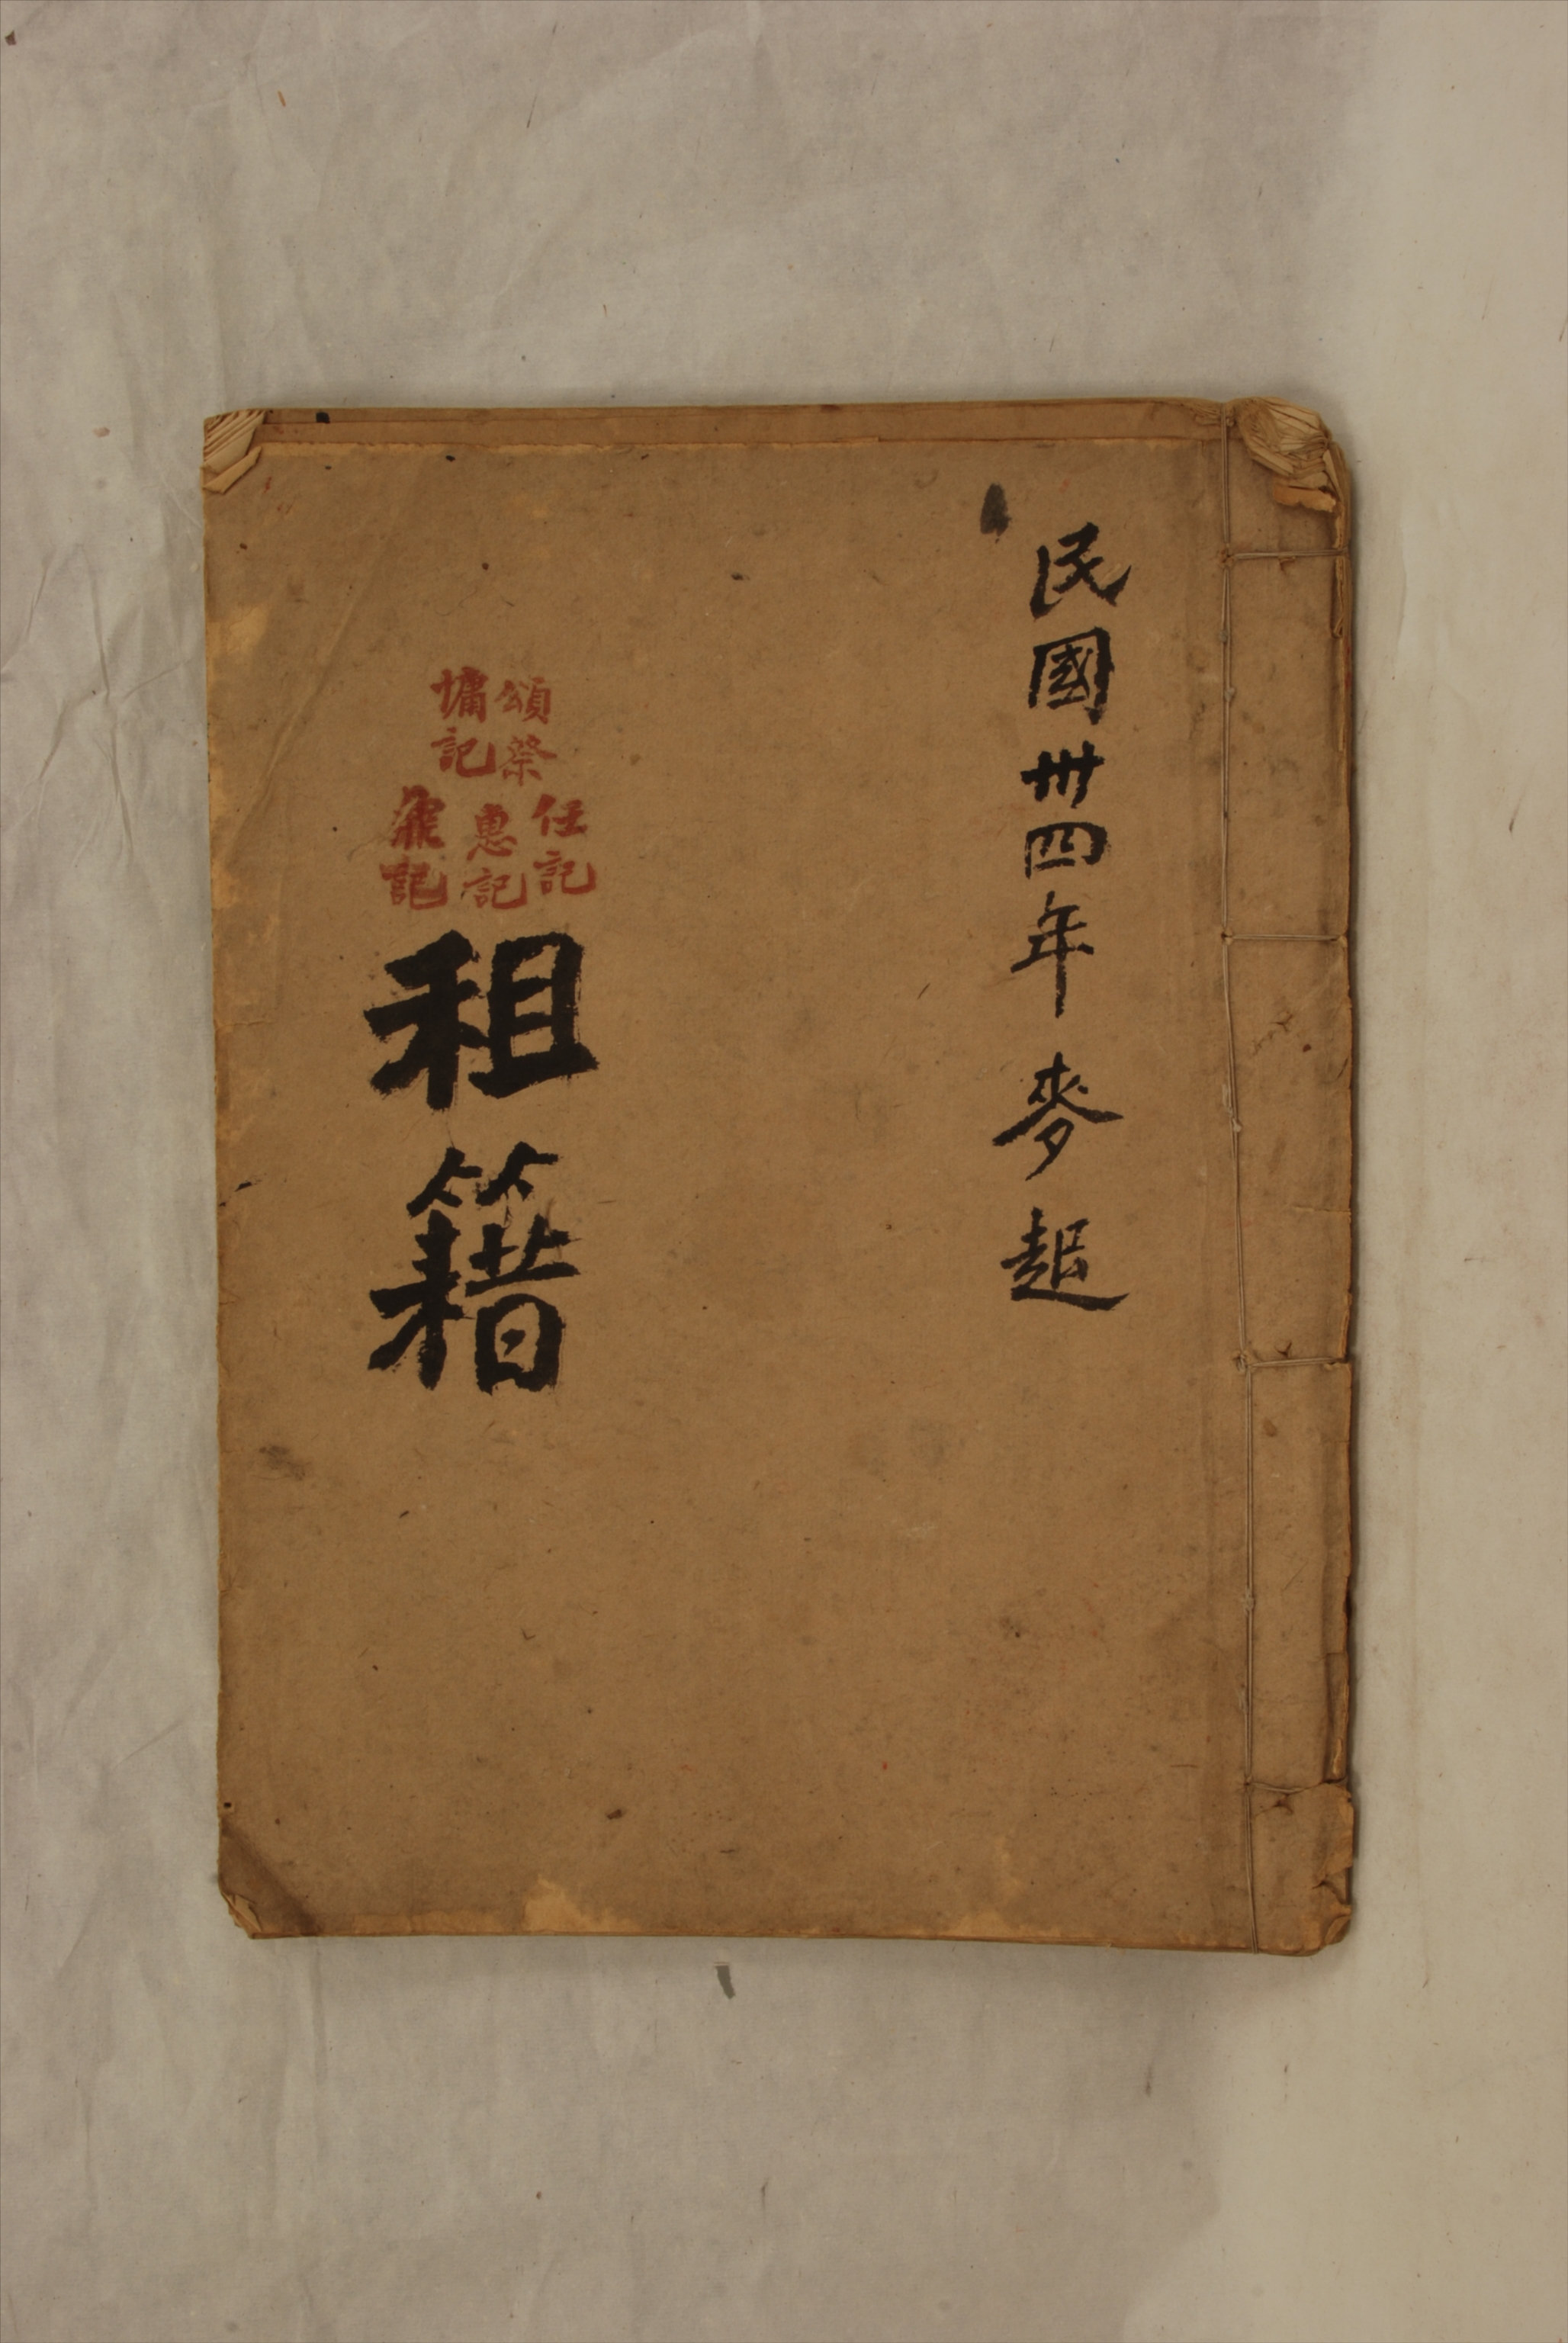 民國卅四年 麥起
頌祭
墉記
任記
惠記
記
租籍